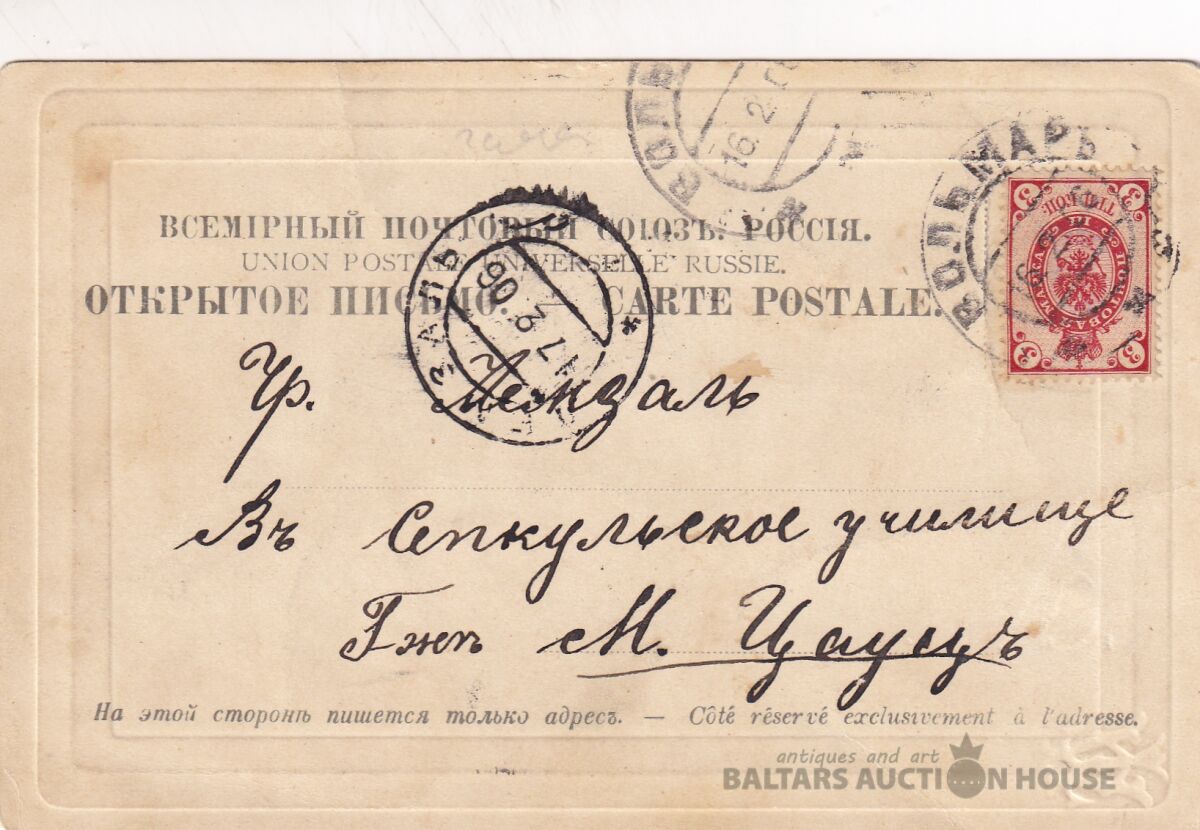 ВОЛЬ
16.2
ВОЛЬМАРЪ
3 3
ТРИ КОП.
ПОЧТОВАЯ МАРКА
3 3
ВСЕМІРНЫЙ ПОЧТОВЫЙ СОЮЗЪ. РОССІЯ.
UNION POSTALE UNIVERSELLE RUSSIE.
ОТКРЫТОЕ ПИСЬМО. CARTE POSTALE.
ЛЕМЗАЛЬ
17 2 06
Чр. Лемзаль
Въ Сепкульское училище
Гжѣ М. Цауцъ
На этой сторонѣ пишется только адресъ. — Côté réservé exclusivement à l'adresse.
antiques and art
BALTARS AUCTION HOUSE